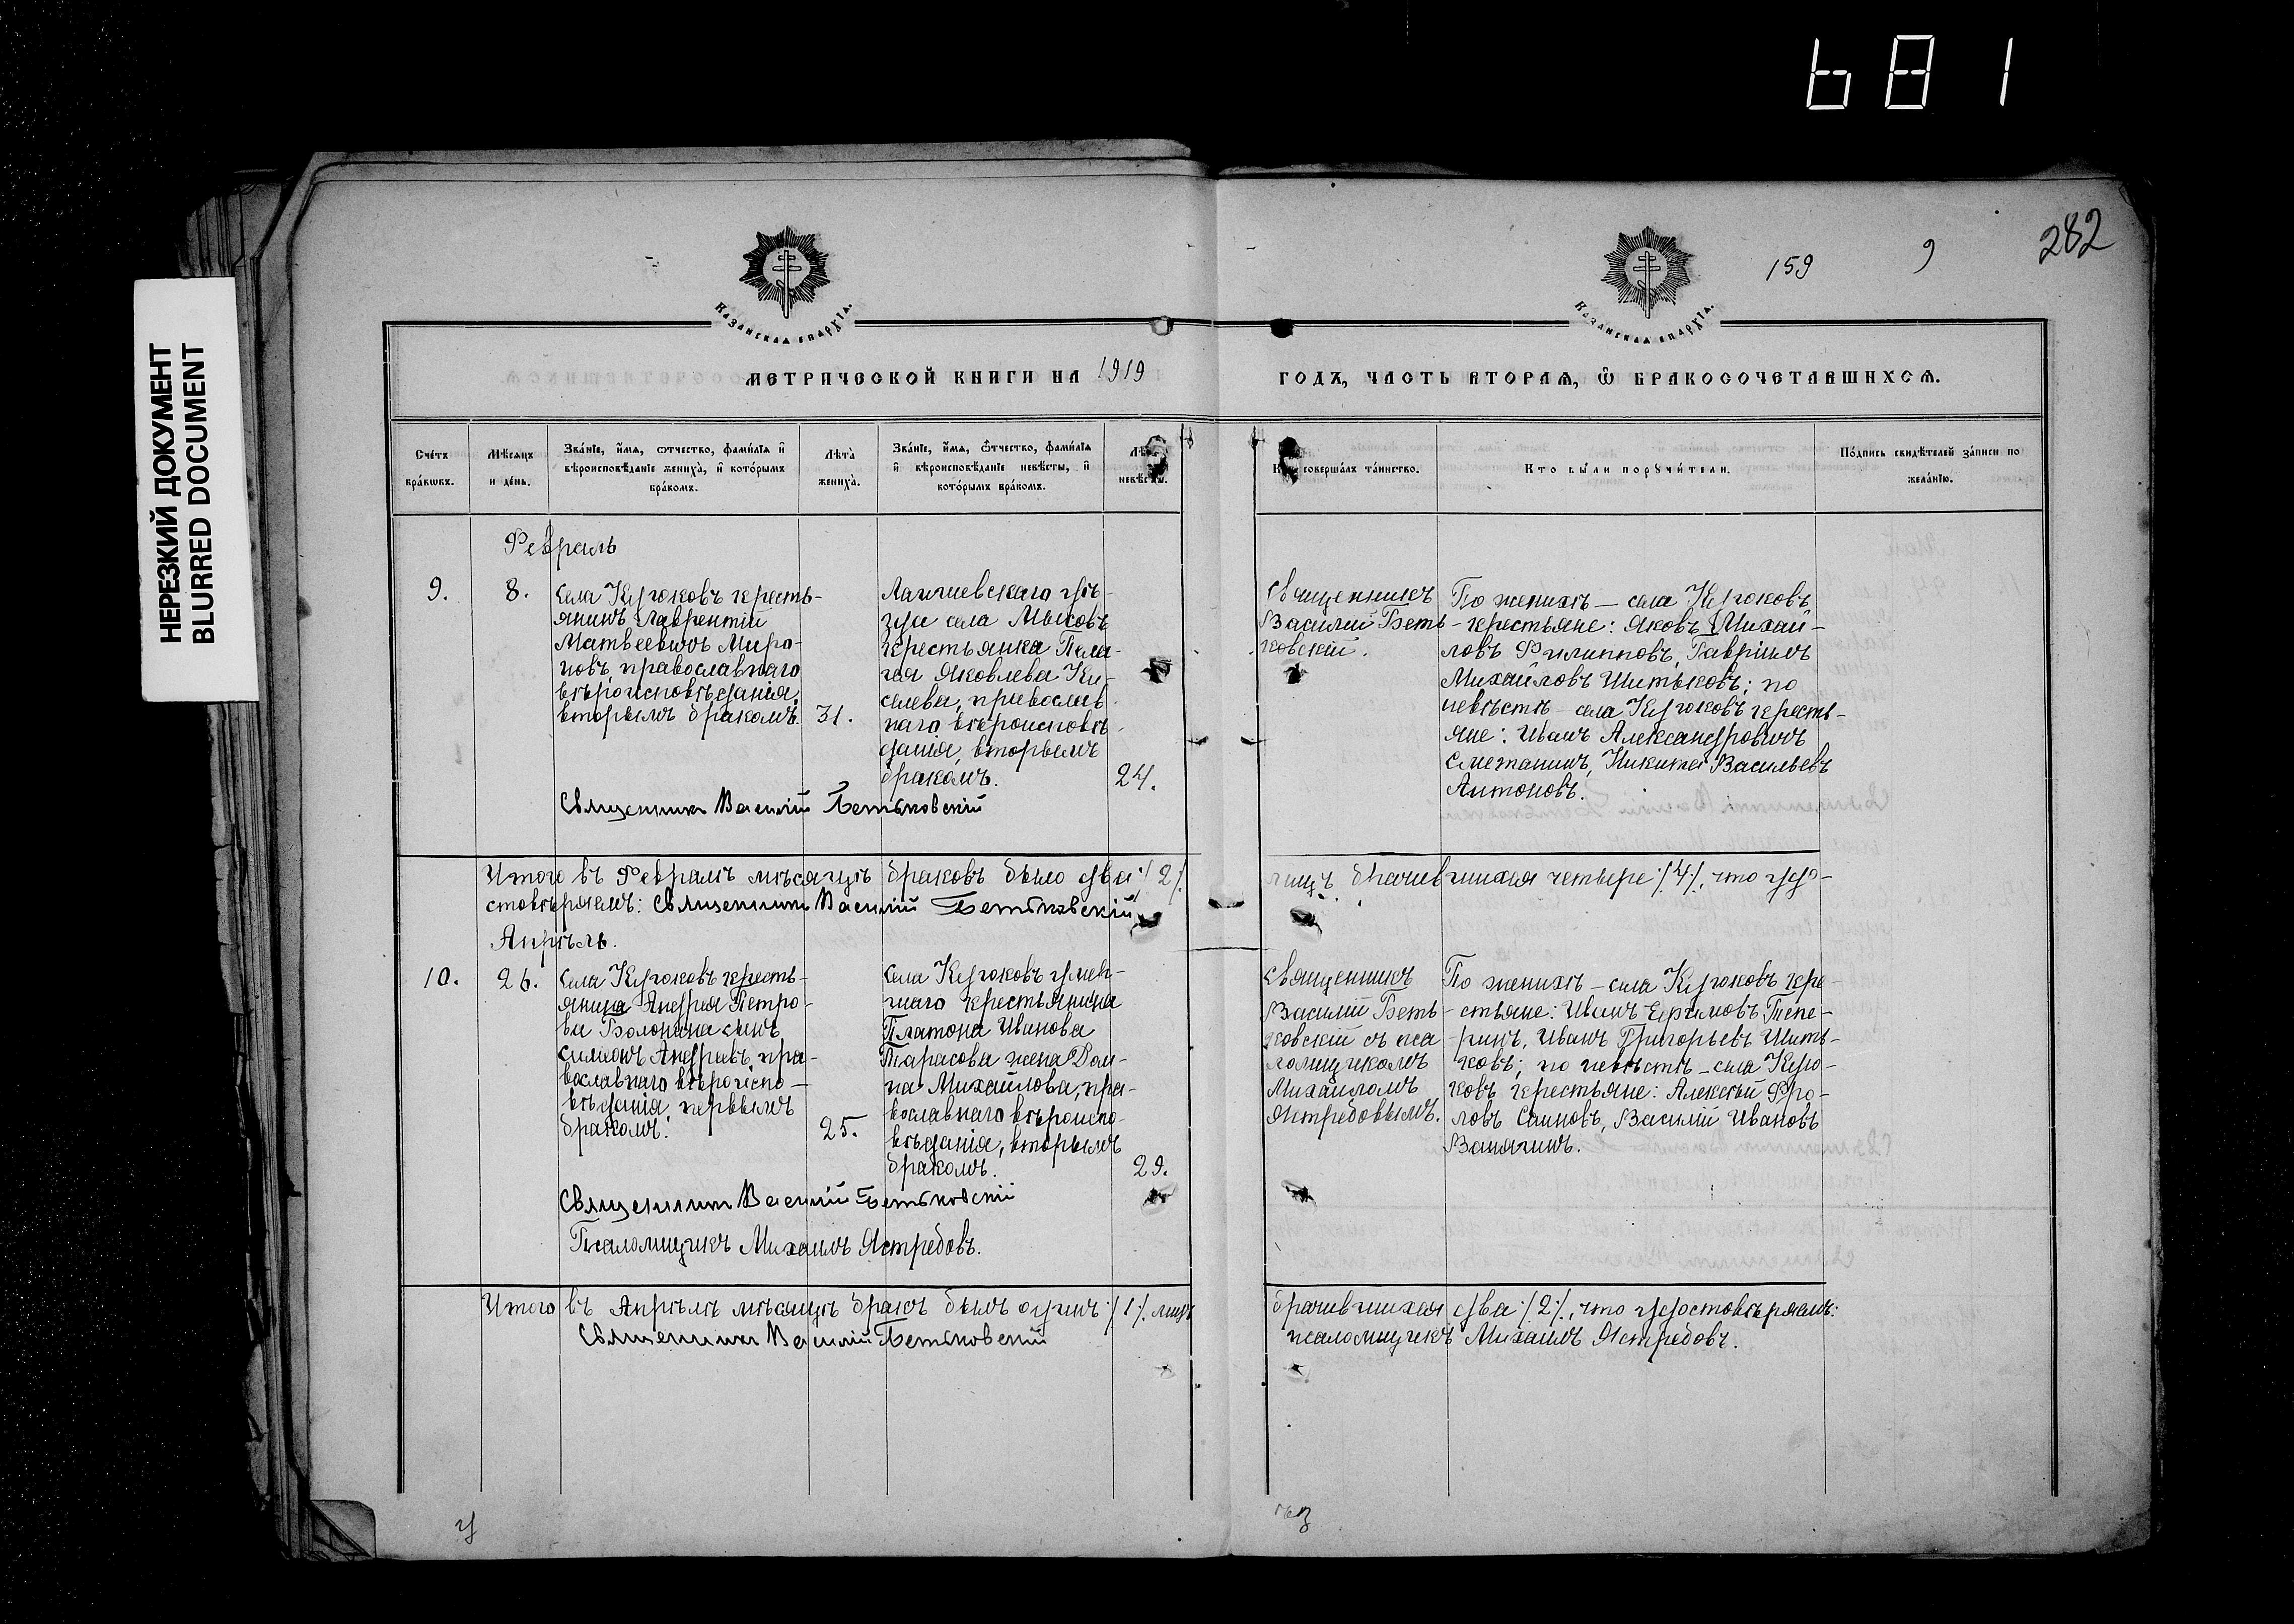 681
НЕРЕЗКИЙ ДОКУМЕНТ
BLURRED DOCUMENT
159
9
282
Казанская епархїа.
Казанская епархїа.
МЕТРИЧЕСКОЙ КНИГИ НА 1919
ГОДЪ, ЧАСТЬ ВТОРАЯ, Ѡ БРАКОСОЧЕТАВШИХСЯ.
Счетъ браковъ.
Мѣсяцъ и день.
Званіе, имя, отчество, фамилія и вѣроисповѣданіе жениха, и которымъ бракомъ.
Лѣта жениха.
Званіе, имя, отчество, фамилія и вѣроисповѣданіе невѣсты, и которымъ бракомъ.
невѣсты.
совершалъ таинство.
Кто были поручители.
Подпись свидѣтелей записи по желанію.
Февраль
9.
8.
села Кугюковъ кресть-
янинъ Лаврентій
Матвеевичъ Миро-
новъ, православнаго
вѣроисповѣданія,
вторымъ бракомъ.
31.
Лаишевскаго уѣ-
зда села Мысовъ
крестьянка Пела-
гея Яковлева Ки-
селева, православ-
наго вѣроисповѣ-
данія, вторымъ
бракомъ.
24.
Священникъ
Василій Беть-
ковскій.
По женихѣ – села Кугюковъ
крестьяне: Яковъ Михай-
ловъ Филипповъ, Гавріилъ
Михайловъ Шитьковъ; по
невѣстѣ – села Кугюковъ кресть-
яне: Иванъ Александровичъ
Сметанинъ, Никита Васильевъ
Антоновъ.
Священникъ Василій Бетьковскій
Итого въ Февралѣ мѣсяцѣ браковъ было два /2/.
лицъ брачившихся четыре /4/, что удо-
стовѣряемъ: Священникъ Василій Бетьковскій
Апрѣль.
10.
26.
села Кугюковъ кресть-
янина Андрея Петро-
ва Болонина сынъ
Симеонъ Андреевъ, пра-
вославнаго вѣроиспо-
вѣданія, первымъ
бракомъ.
25.
села Кугюковъ умер-
шаго крестьянина
Платона Иванова
Тарасова жена Дом-
на Михайлова, пра-
вославнаго вѣроиспо-
вѣданія, вторымъ
бракомъ.
29.
Священникъ
Василій Беть-
ковскій съ пса
ломщикомъ
Михаиломъ
Ястребовымъ.
По женихѣ – села Кугюковъ кре-
стьяне: Иванъ Ефимовъ Тепе-
ринъ, Иванъ Григорьевъ Шить-
ковъ; по невѣстѣ – села Кугю-
ковъ крестьяне: Алексѣй Фро-
ловъ Саиновъ, Василій Ивановъ
Ванягинъ.
Священникъ Василій Бетьковскій
Псаломщикъ Михаилъ Ястребовъ.
Итого въ Апрѣлѣ мѣсяцѣ бракъ былъ одинъ /1/. лицъ
брачившихся два /2/, что удостовѣряемъ:
Священникъ Василій Бетьковскій
псаломщикъ Михаилъ Ястребовъ.